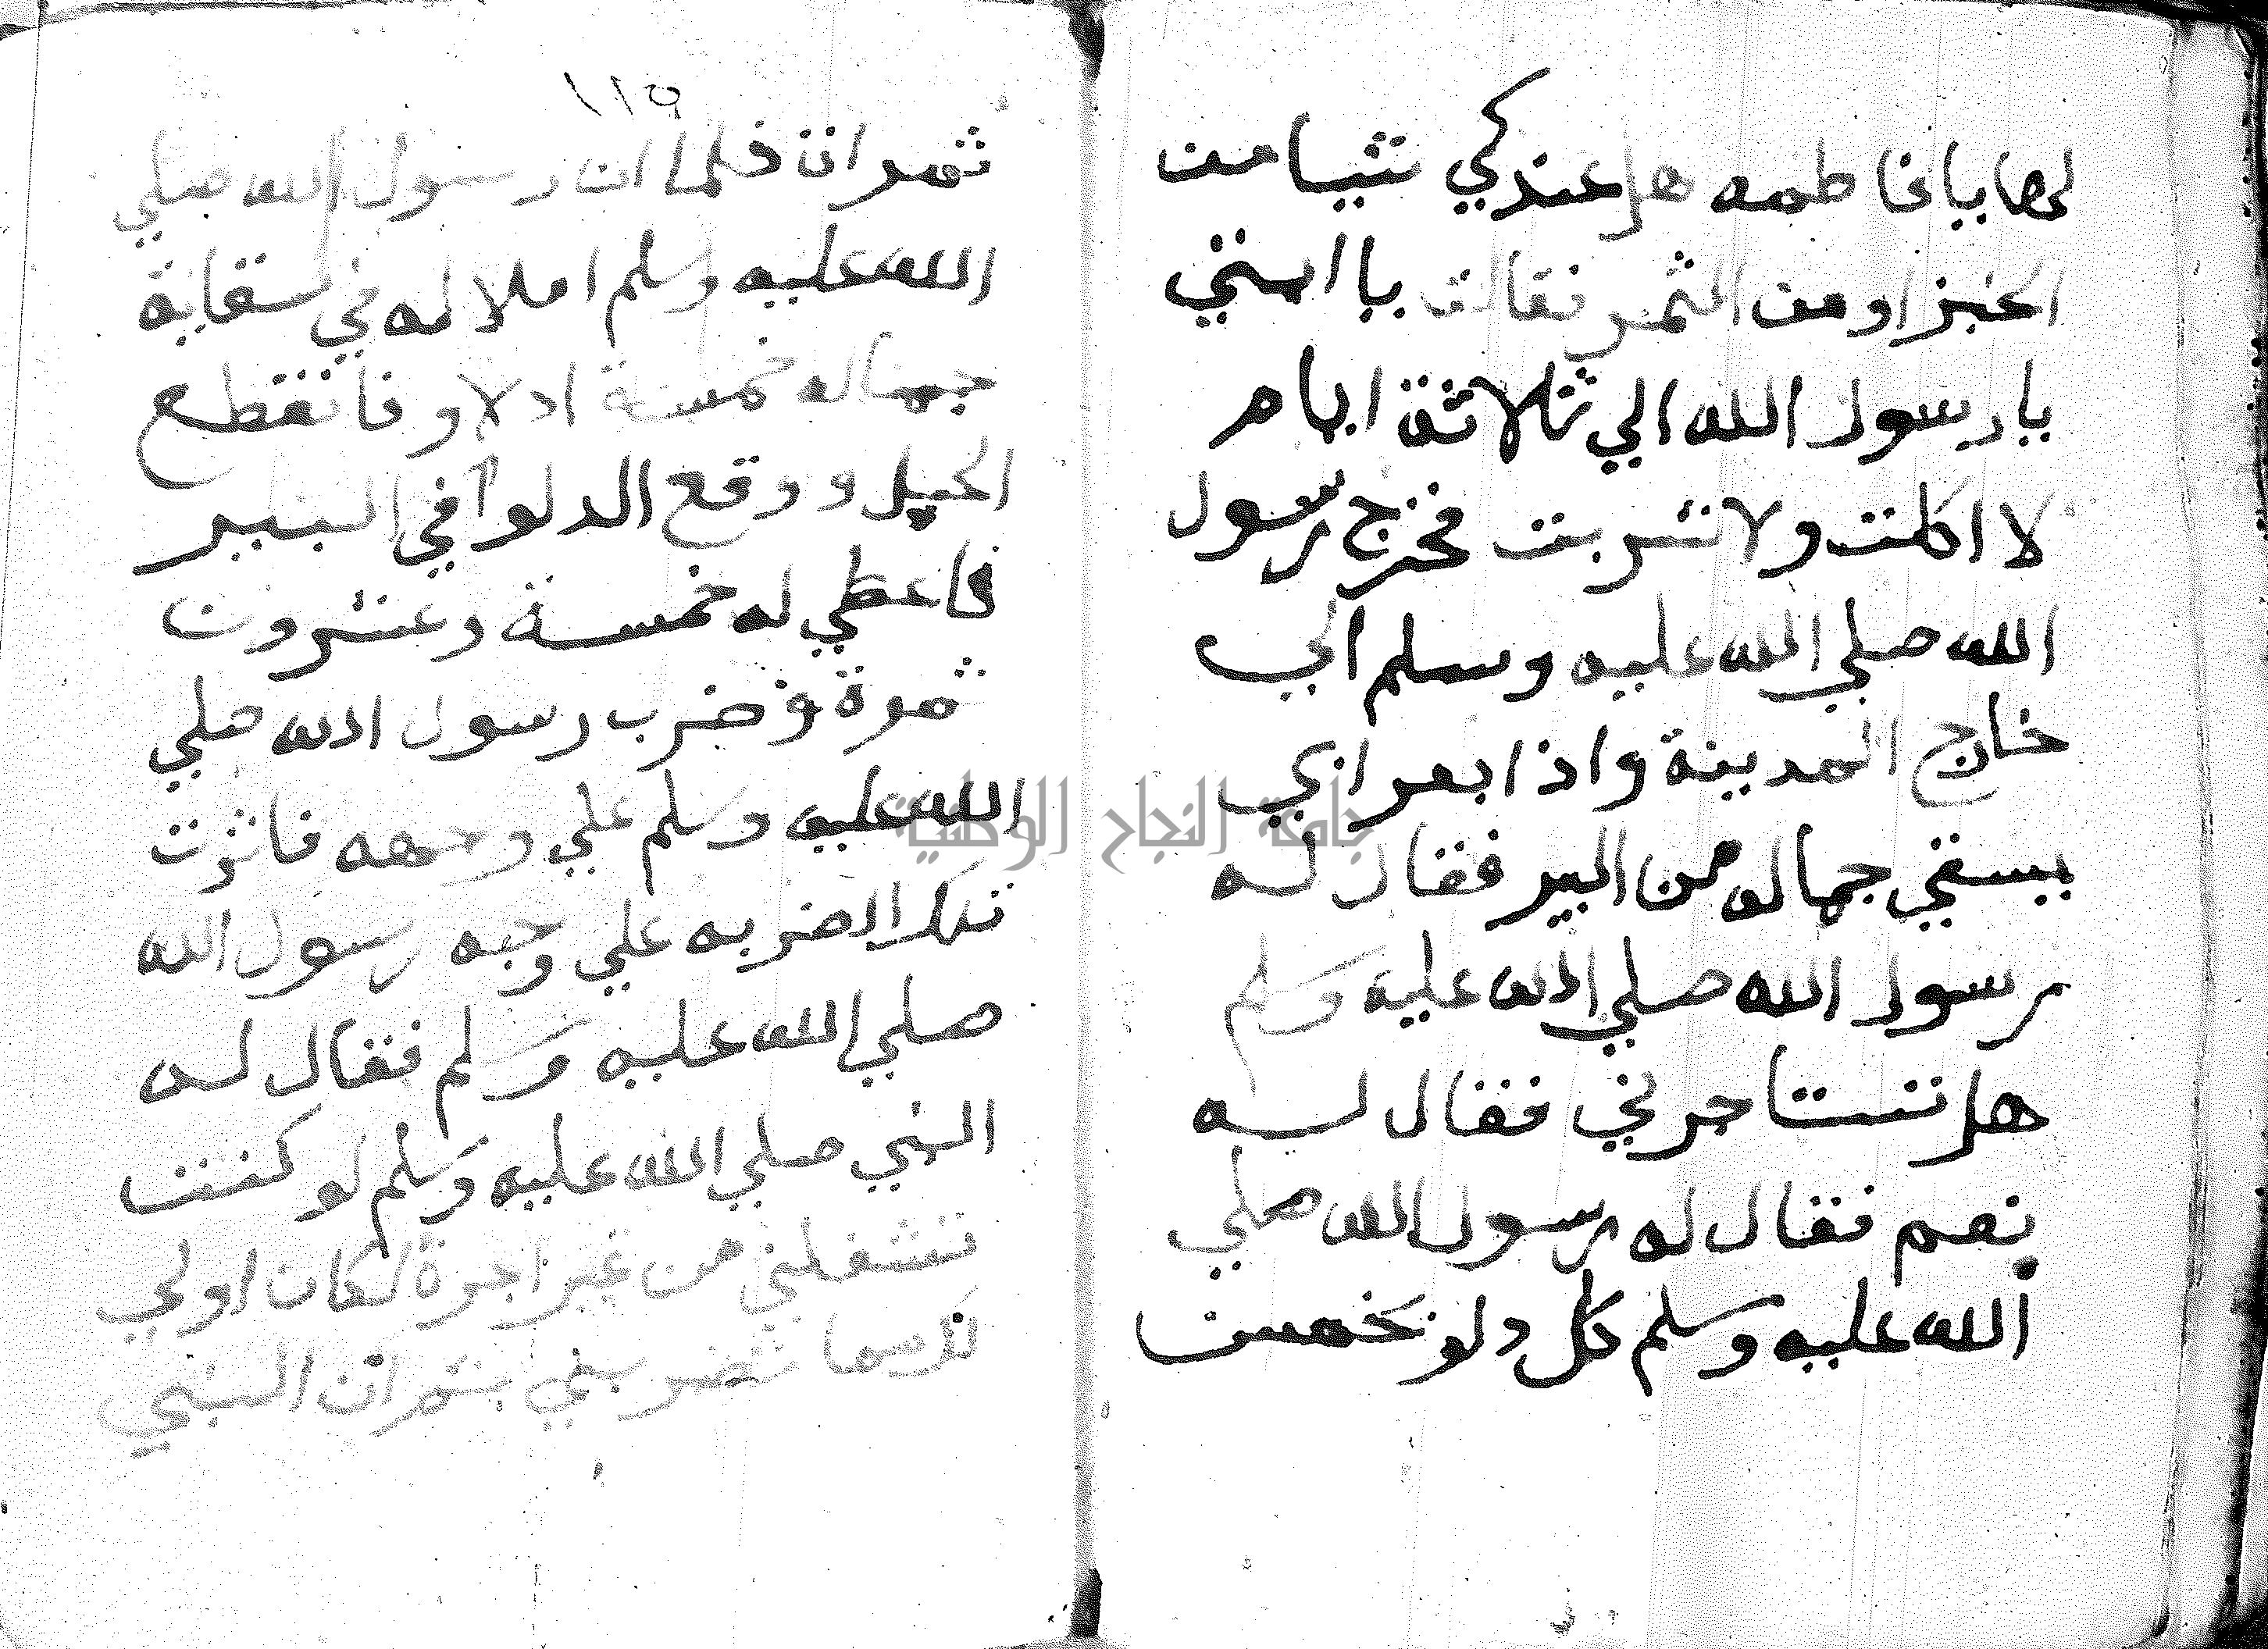 لها يا فاطمه هل عندكي شيا من
الخبز او من الثمر فقالت يا ابتي
يا رسول الله الي ثلاثة ايام
لا اكلت ولا شربت فخرج رسول
الله صلي الله عليه وسلم الي
خارج المدينة واذا بعرابي
يسقي جماله من البير فقال له
رسول الله صلي الله عليه وسلم
هل تستاجرني فقال له
نعم فقال له رسول الله صلي
الله عليه وسلم كل دلو بخمس
١١٥
ثمرات فلما ان رسول الله صلي
الله عليه وسلم املا له في سقاية
جماله خمسة ادلاو فانقطع
الحبل ووقع الدلو في البير
فاعطي له خمسة وعشرون
ثمرة وضرب رسول الله صلي
الله عليه وسلم علي وجهه فاثرت
تلك الضربه علي وجه رسول الله
صلي الله عليه وسلم فقال له
النبي صلي الله عليه وسلم لو كنت
تشغلني من غير اجرة لكان اولي
تضربني بثمرات النبي
جامعة النجاح الوطنية